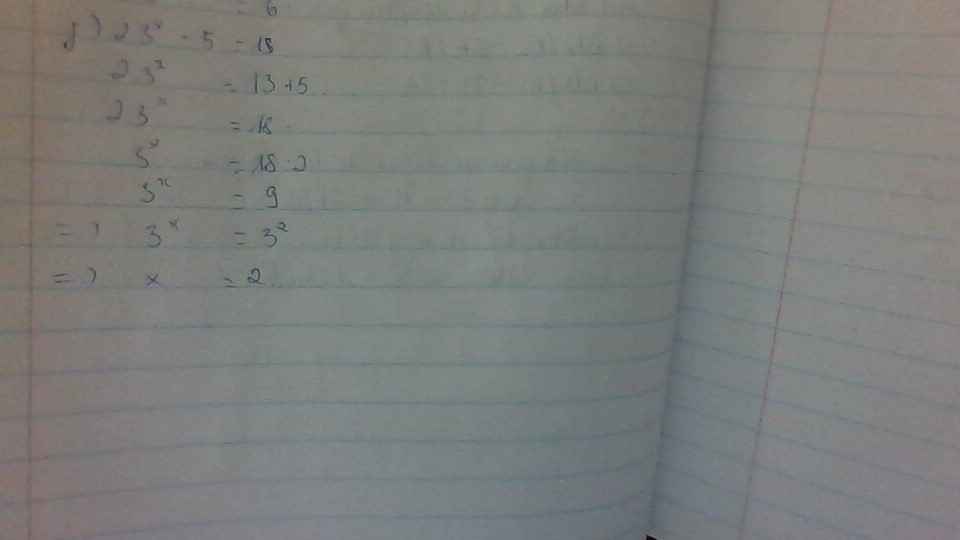 = 6
2 3ˣ - 5 = 13
2 3ˣ = 13 + 5
2 3ˣ = 18
3ˣ = 18 : 2
3ˣ = 9
=> 3ˣ = 3²
=> x = 2